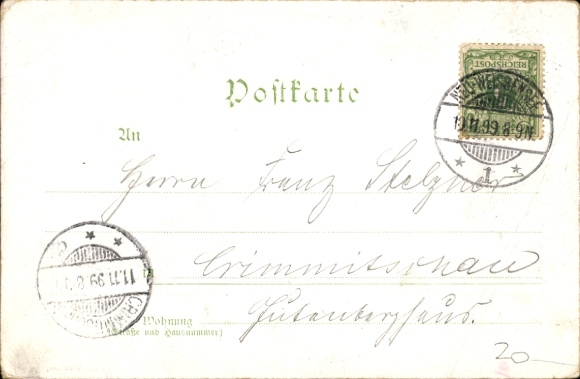 REICHSPOST
NEU-WEISSENSEE
10.11.99.8-9N.
1
Postkarte
An
Herrn Franz Stelzner
Crimmitschau
11.11.99.8
Gutenberghaus.
Wohnung
(Straße und Hausnummer)
20-